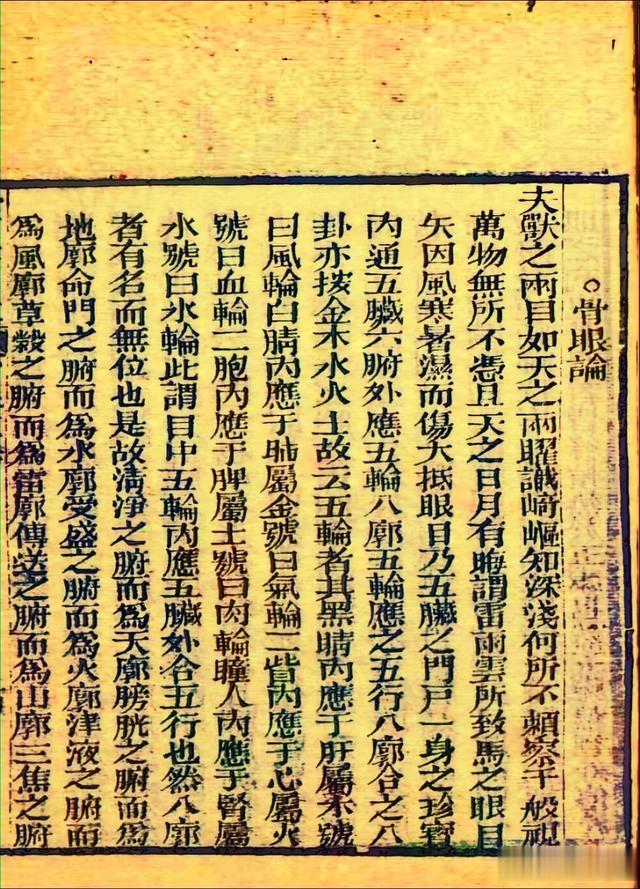 ○骨眼論
夫獸之兩目如天之兩曜識﨑嶇知深淺何所不頼察千般視
萬物無所不憑且天之日月有晦謂雷雨雲所致馬之眼目
矢因風寒暑濕而傷大抵眼目乃五臟之門戸一身之珍寶
內通五臟六腑外應五輪八廓五輪應之五行八廓合之八
卦亦按金木水火土故云五輪者其黑睛內應于肝屬木號
曰風輪白睛內應于肺屬金號曰氣輪二眥內應于心屬火
號曰血輪二胞內應于脾屬土號曰肉輪瞳人內應于腎屬
水號曰水輪此謂目中五輪內應五臟外合五行也然八廓
者有名而無位也是故清淨之腑而爲天廓膀胱之腑而爲
地廓命門之腑而爲水廓受盛之腑而爲火廓津液之腑而
爲風廓草穀之腑而爲雷廓傳送之腑而爲山廓三焦之腑